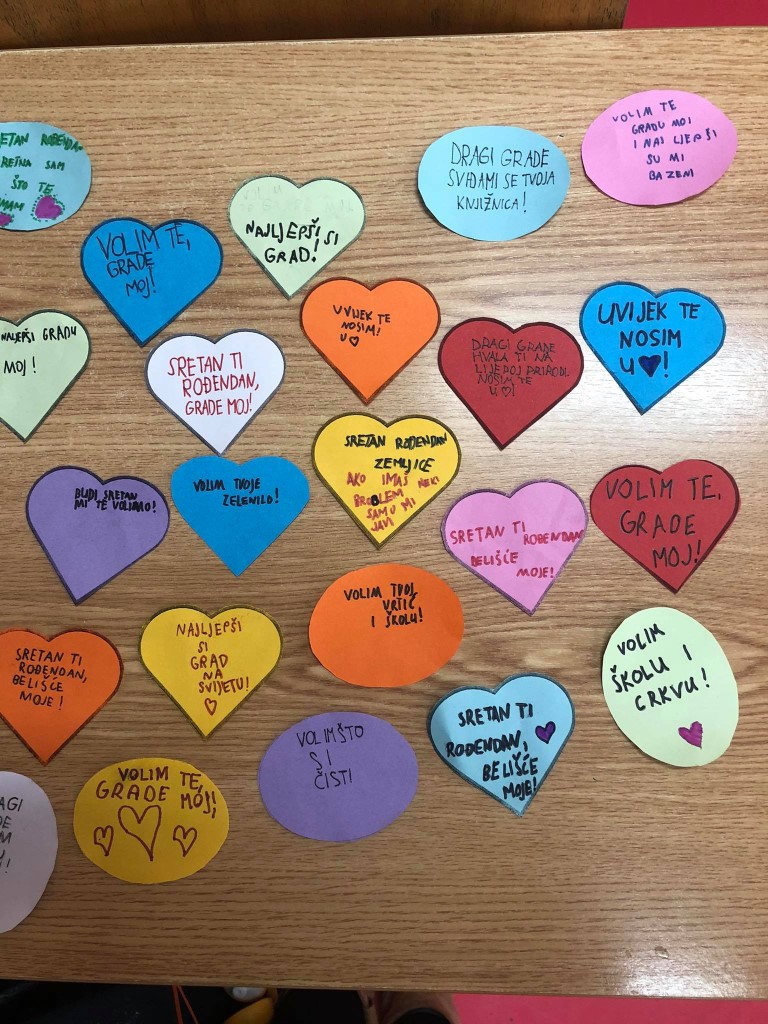 ETAN ROĐENDAN
RETNA SAM
ŠTO TE
MAM
VOLIM TE,
GRADE
MOJ!
NAJLJEPŠI SI
GRAD!
DRAGI GRADE
SVIĐAMI SE TVOJA
KNJIŽNICA!
VOLIM TE
GRADU MOJ
I NAJ LJEPŠI
SU MI
BAZENI
NALJEPŠI GRADU
MOJ!
SRETAN TI
ROĐENDAN,
GRADE MOJ!
UVIJEK TE
NOSIM!
U
DRAGI GRADE
HVALA TI NA
LIJEPOJ PRIRODI.
NOSIM TE
U !
UVIJEK TE
NOSIM
U !
BUDI SRETAN
MI TE VOLIMO!
VOLIM TVOJE
ZELENILO!
SRETAN ROĐENDAN
ZEMLJICE
AKO IMAŠ NEKI
PROBLEM
SAMO MI
JAVI
SRETAN TI
ROĐENDAN
BELIŠĆE
MOJE!
VOLIM TE,
GRADE
MOJ!
SRETAN TI
ROĐENDAN,
BELIŠĆE
MOJE!
NAJLJEPŠI
SI
GRAD
NA
SVIJETU!
VOLIM TVOJ
VRTIĆ
I ŠKOLU!
VOLIM
ŠKOLU I
CRKVU!
SRETAN TI
ROĐENDAN,
BELIŠĆE
MOJE!
VOLIM ŠTO
SI
ČIST!
VOLIM TE,
GRADE MOJ!
AGI
DE
M
U
!